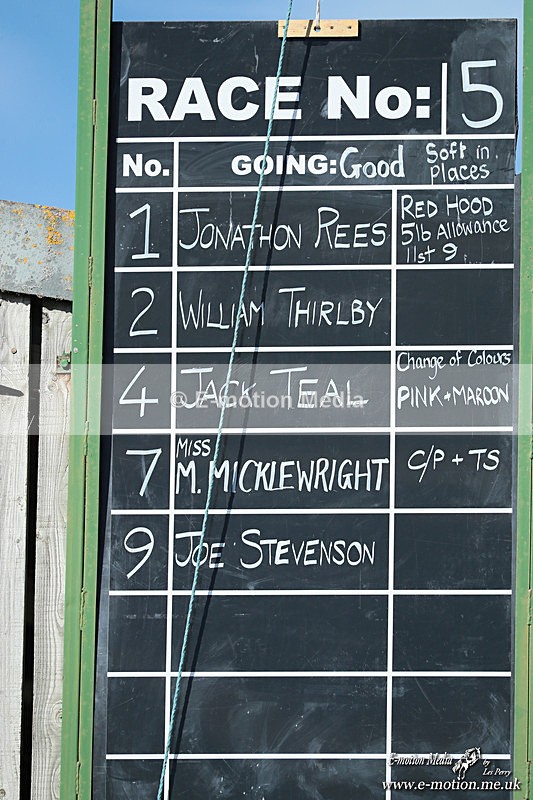 RACE No: 5
No. GOING: Good Soft in places
1 JONATHON REES RED HOOD
5lb Allowance
11st 9
2 WILLIAM THIRLBY
4 JACK TEAL Change of Colours
PINK + MAROON
© E-motion Media
7 MISS
M. MICKLEWRIGHT C/P + TS
9 JOE STEVENSON
E-motion Media by
Les Perry
www.e-motion.me.uk